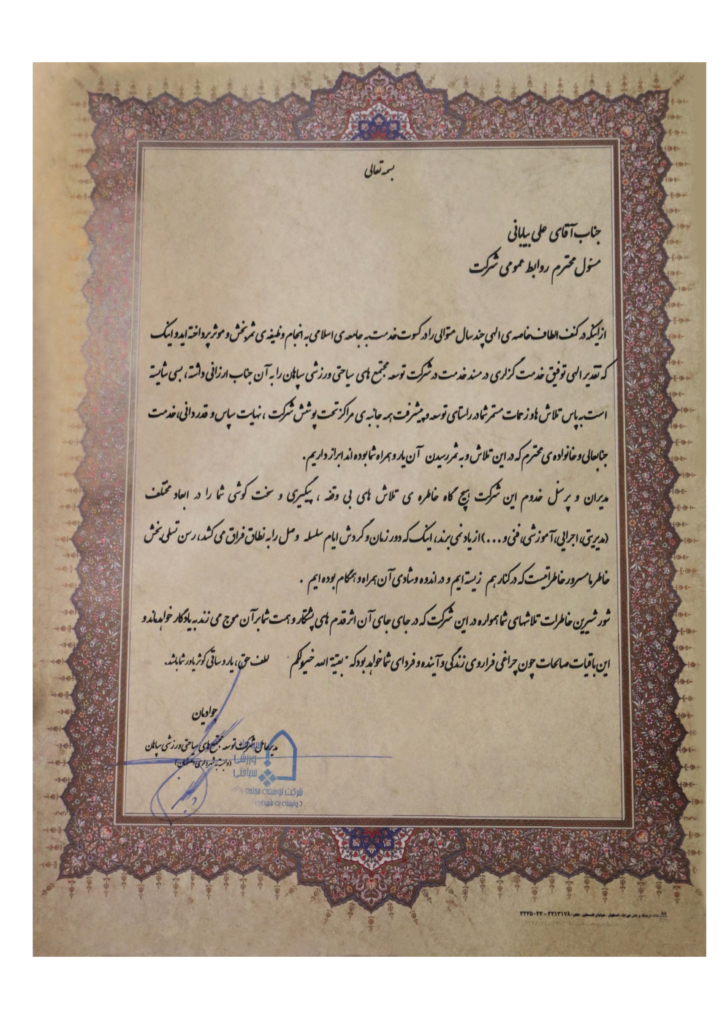 بسمه تعالی
جناب آقای علی بیابانی
مسئول محترم روابط عمومی شرکت
از اینکه در کنف الطاف خاصه ی الهی چند سال متوالی را در کسوت خدمت به جامعه ی اسلامی به انجام وظیفه ی ثمربخش و موثر پرداخته اید و اینک
که تقدیر الهی توفیق خدمت گزاری در مسند خدمت در شرکت توسعه مجتمع های سیاحتی ورزشی سپاهان را به آن جناب ارزانی داشته، بسی شایسته
است به پاس تلاش ها و زحمات مستمر شما در راستای توسعه و پیشرفت همه جانبه ی مراکز تحت پوشش شرکت، نهایت سپاس و قدردانی، خدمت
جنابعالی و خانواده ی محترم که در این تلاش و به ثمر رسیدن آن یار و همراه شما بوده اند ابراز داریم.
مدیران و پرسنل خدوم این شرکت هیچ گاه خاطره ی تلاش های بی وقفه، پیگیری و سخت کوشی شما را در ابعاد مختلف
(مدیریتی، اجرایی، آموزشی، فنی و ...) از یاد نمی برند، اینک که دور زمان و گردش ایام سلسله وصل را به نطاق فراق می کشد، رسن تسلی بخش
خاطر ما مسرور خاطراتیست که در کنار هم زیسته ایم و در اندوه و شادی آن همراه و هم گام بوده ایم.
شور شیرین خاطرات تلاشهای شما همواره در این شرکت که در جای جای آن اثر قدم های پشتکار و همت شما بر آن موج می زند به یادگار خواهد ماند و
این باقیات صالحات چون چراغی فراروی زندگی و آینده و فردای شما خواهد بود که "بقیة الله خیر لکم" لطف حق، یار و ساقی کوثر یاور شما باشد.
جوادیان
مدیرعامل شرکت توسعه مجتمع های سیاحتی ورزشی سپاهان
(وابسته به شهرداری اصفهان)
ورزشی
سیاحتی